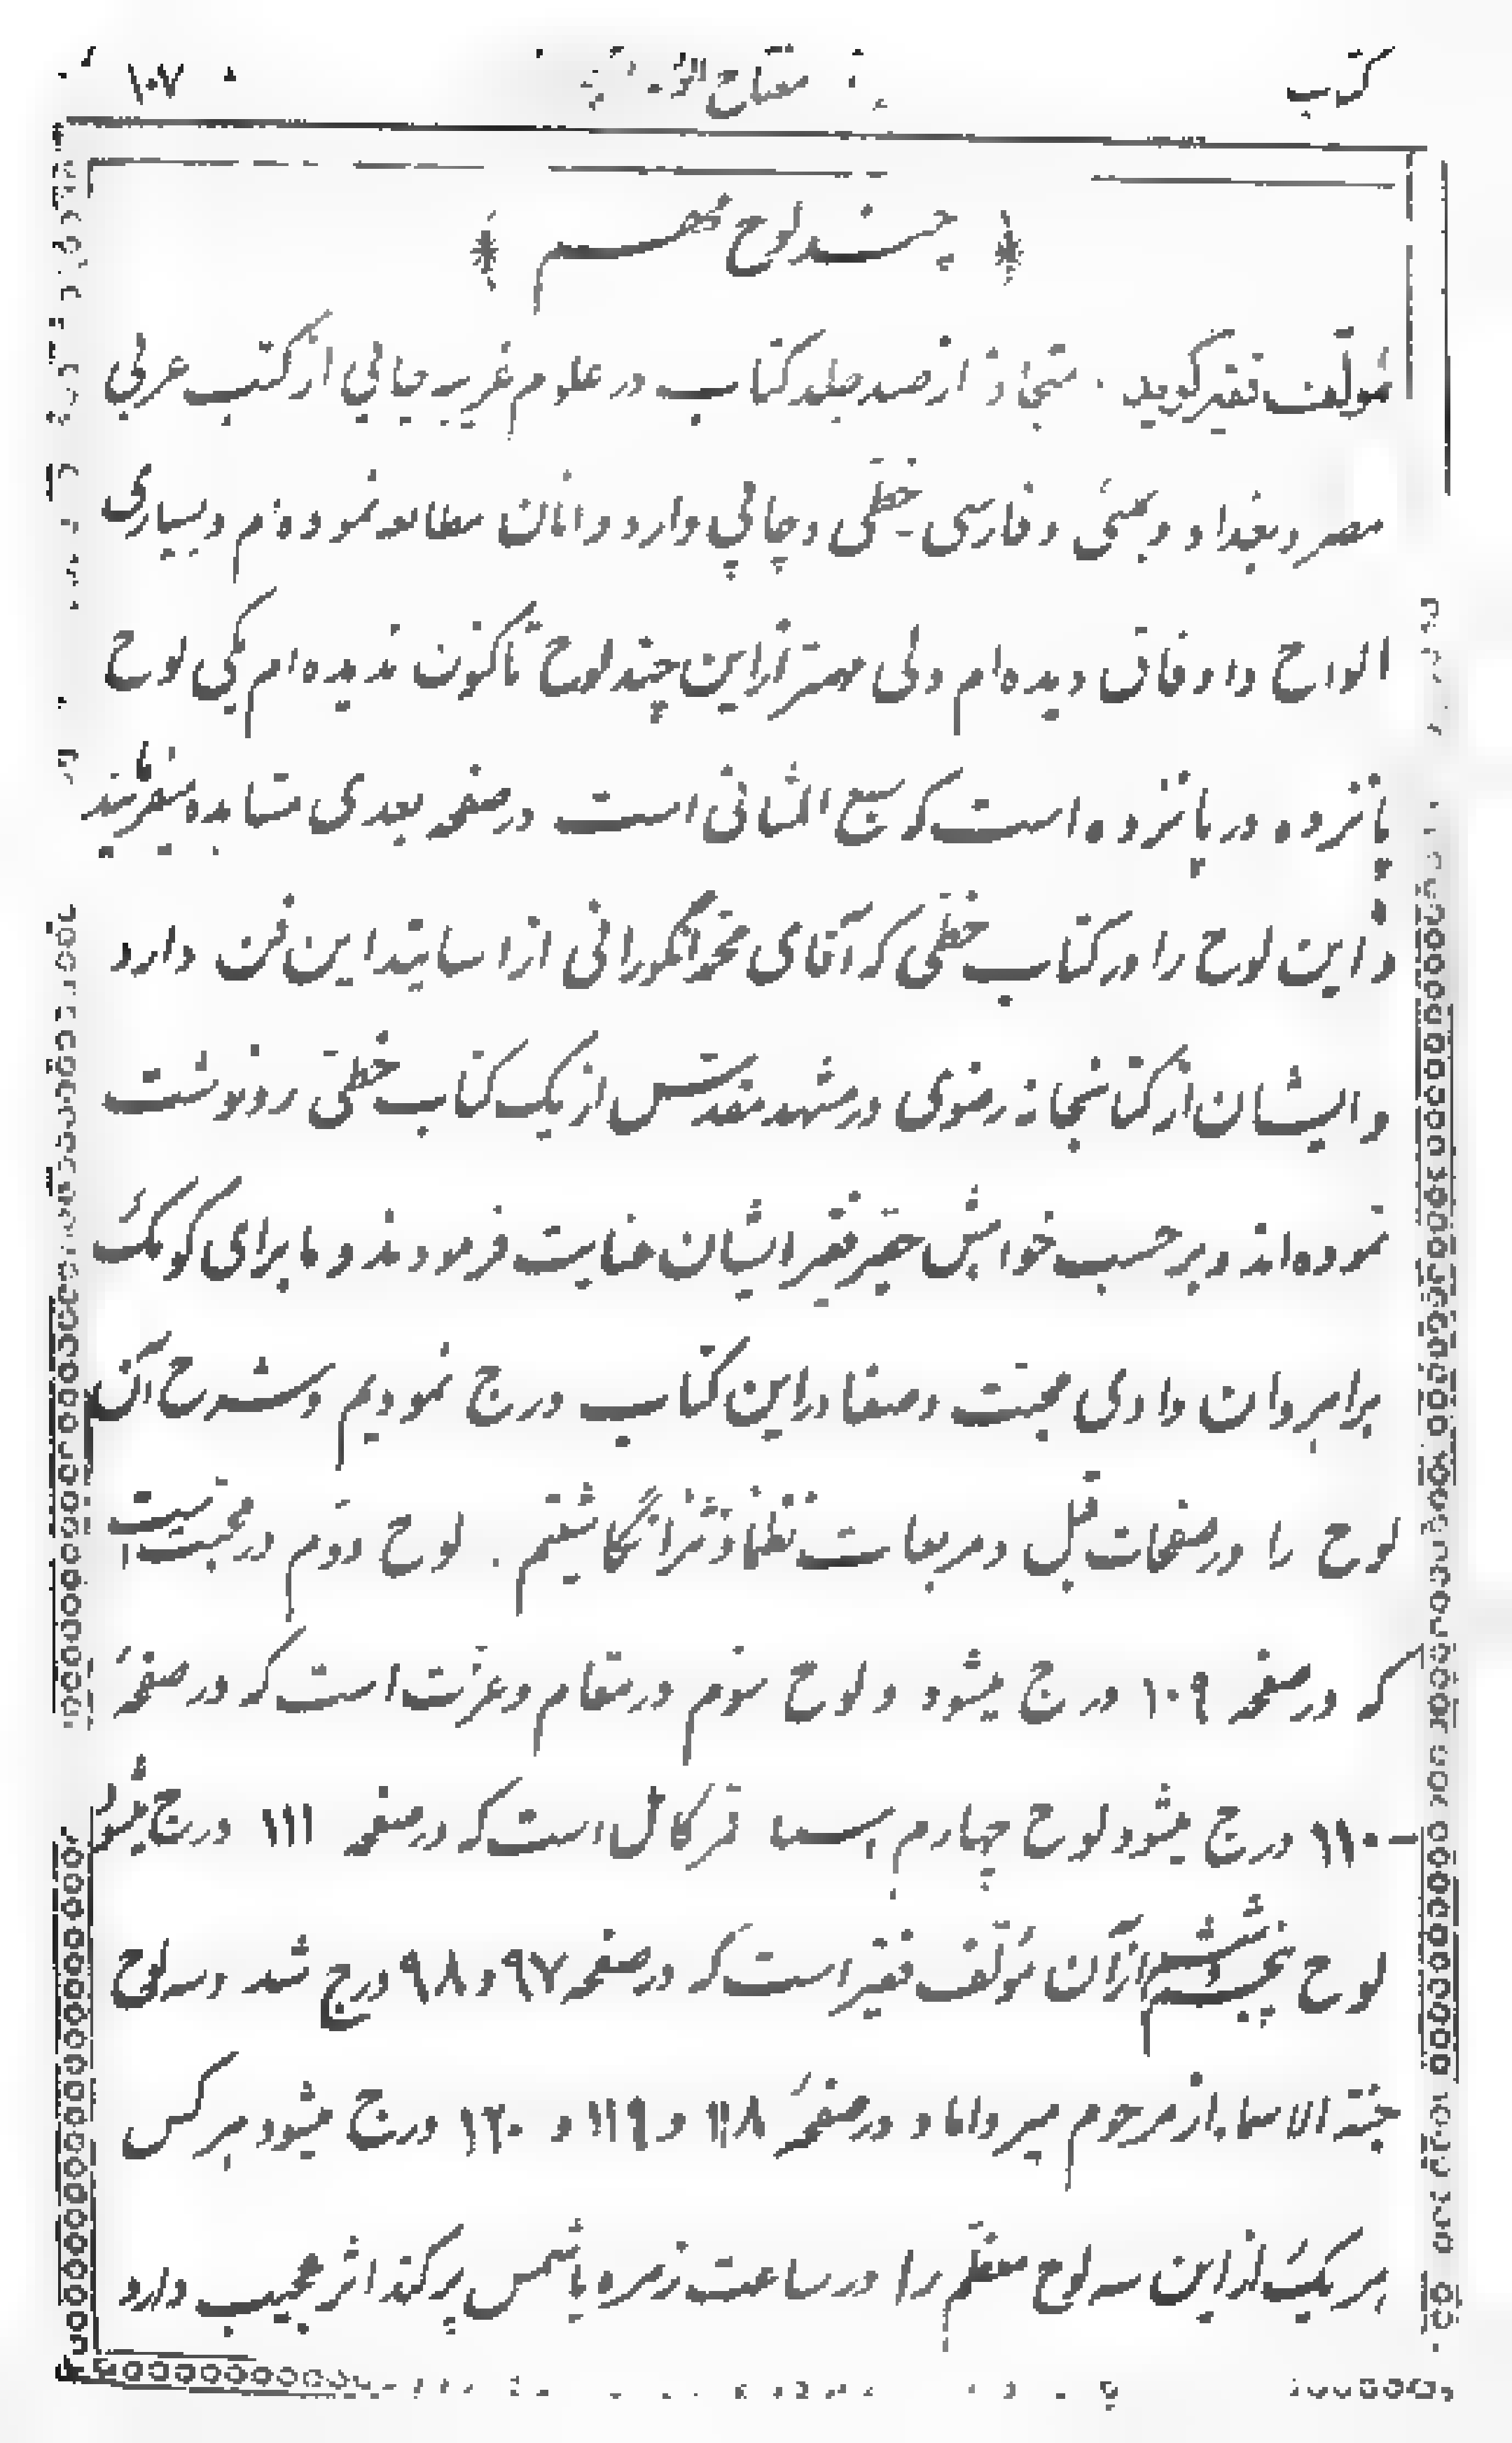 کتاب مفتاح ۱۰۷
چند لوح مهم
مؤلف فقیر گوید. متجاوز از صد جلد کتاب در علوم غریبه چاپی از کتب عربی
مصر و بغداد و بمبئی و فارسی خطی و چاپی دارد و اٰنان مطالعه نموده‌ام و بسیاری
الواح و اوفاق دیده‌ام ولی مهمتر از این چند لوح تاکنون ندیده‌ام یکی لوح
پانزده در پانزده است که سبع المثانی است در صفحه بعدی مشاهده میفرمائید
و این لوح را در کتاب خطی که آقای انگورانی از اساتید این فن دارد
و ایشان از کتابخانه رضوی در مشهد مقدس از یک کتاب خطی رونوشت
نموده‌اند و بر حسب خواهش حقیر فقیر ایشان عنایت فرمودند و ما برای کومک
برا بروان وادی محبت و صفا در این کتاب درج نمودیم و شرح آن
لوح را در صفحات قبل و مربعات نظماً و نثراً نگاشتیم. لوح دوم در محبت است
که در صفحه ۱۰۹ درج میشود و لوح سوم در مقام و عزت است که در صفحهٔ
-۱۱۰ درج میشود لوح چهارم اسماء قمر کامل است که در صفحه ۱۱۱ درج میشود
لوح پنجم و ششم از آن مؤلف فقیر است که در صفحه ۹۷ و ۹۸ درج شد و سه لوح
جنة الاسماء از مرحوم میرداماد در صفحهٔ ۱۱۸ و ۱۱۹ و ۱۲۰ درج میشود هر کس
هر یک از این سه لوح معظم را در ساعت زهره یا شمس پر کند اثر عجیب دارد